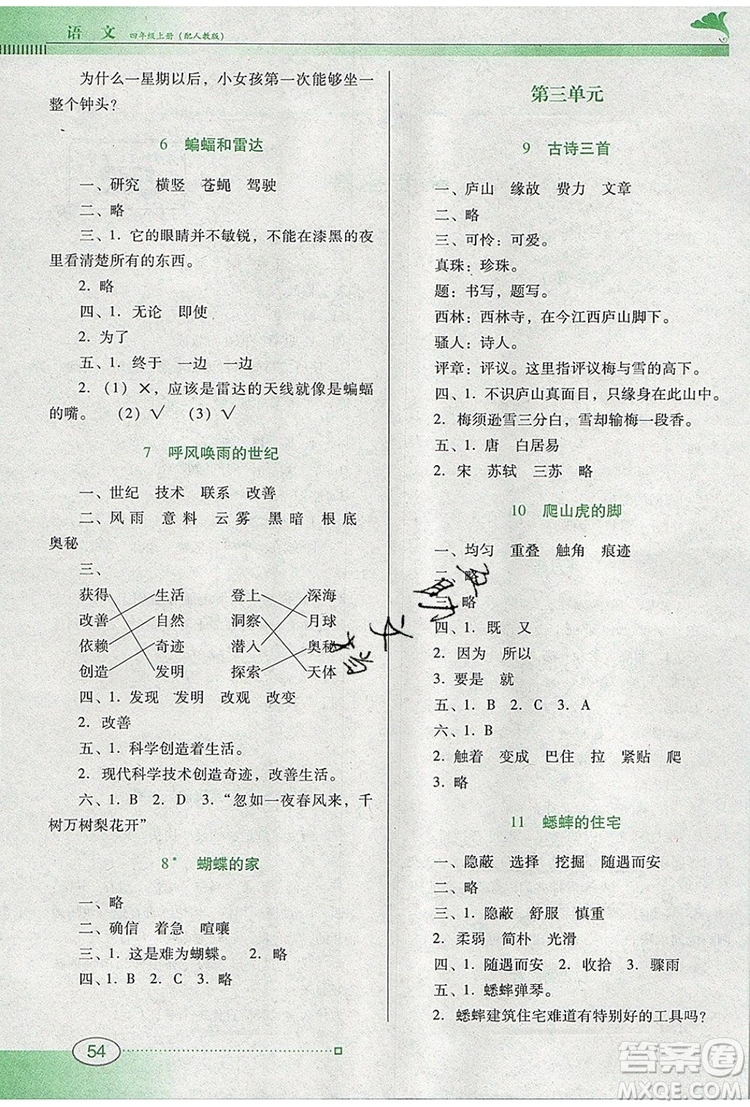 语 文 四年级上册(配人教版)
为什么一星期以后，小女孩第一次能够坐一
整个钟头?
6 蝙蝠和雷达
一、研究 横竖 苍蝇 驾驶
二、略
三、1. 它的眼睛并不敏锐，不能在漆黑的夜
里看清楚所有的东西。
2. 略
四、1. 无论 即使
2. 为了
五、1. 终于 一边 一边
2. (1) ×，应该是雷达的天线就像是蝙蝠
的嘴。 (2) √ (3) √
7 呼风唤雨的世纪
一、世纪 技术 联系 改善
二、风雨 意料 云雾 黑暗 根底
奥秘
三、
获得 生活 登上 深海
改善 自然 洞察 月球
依赖 奇迹 潜入 奥秘
创造 发明 探索 天体
四、1. 发现 发明 改观 改变
2. 改善
五、1. 科学创造着生活。
2. 现代科学技术创造奇迹，改善生活。
六、1. B 2. D 3. “忽如一夜春风来，千
树万树梨花开”
8* 蝴蝶的家
一、略
二、确信 着急 喧嚷
三、1. 这是难为蝴蝶。 2. 略
四、1. B 2. C 3. 略
54
第三单元
9 古诗三首
一、庐山 缘故 费力 文章
二、略
三、可怜：可爱。
真珠：珍珠。
题：书写，题写。
西林：西林寺，在今江西庐山脚下。
骚人：诗人。
评章：评议。这里指评议梅与雪的高下。
四、1. 不识庐山真面目，只缘身在此山中。
2. 梅须逊雪三分白，雪却输梅一段香。
五、1. 唐 白居易
2. 宋 苏轼 三 苏 略
10 爬山虎的脚
一、均匀 重叠 触角 痕迹
二、略
三、略
四、1. 既 又
2. 因为 所以
3. 要是 就
五、1. B 2. C 3. A
六、1. B
2. 触着 变成 巴住 拉 紧贴 爬
3. 略
11 蟋蟀的住宅
一、隐蔽 选择 挖掘 随遇而安
二、略
三、1. 隐蔽 舒服 慎重
2. 柔弱 简朴 光滑
四、1. 随遇而安 2. 收拾 3. 骤雨
五、1. 蟋蟀弹琴。
2. 蟋蟀建筑住宅难道有特别好的工具吗?
答案圈
MXQE.COM